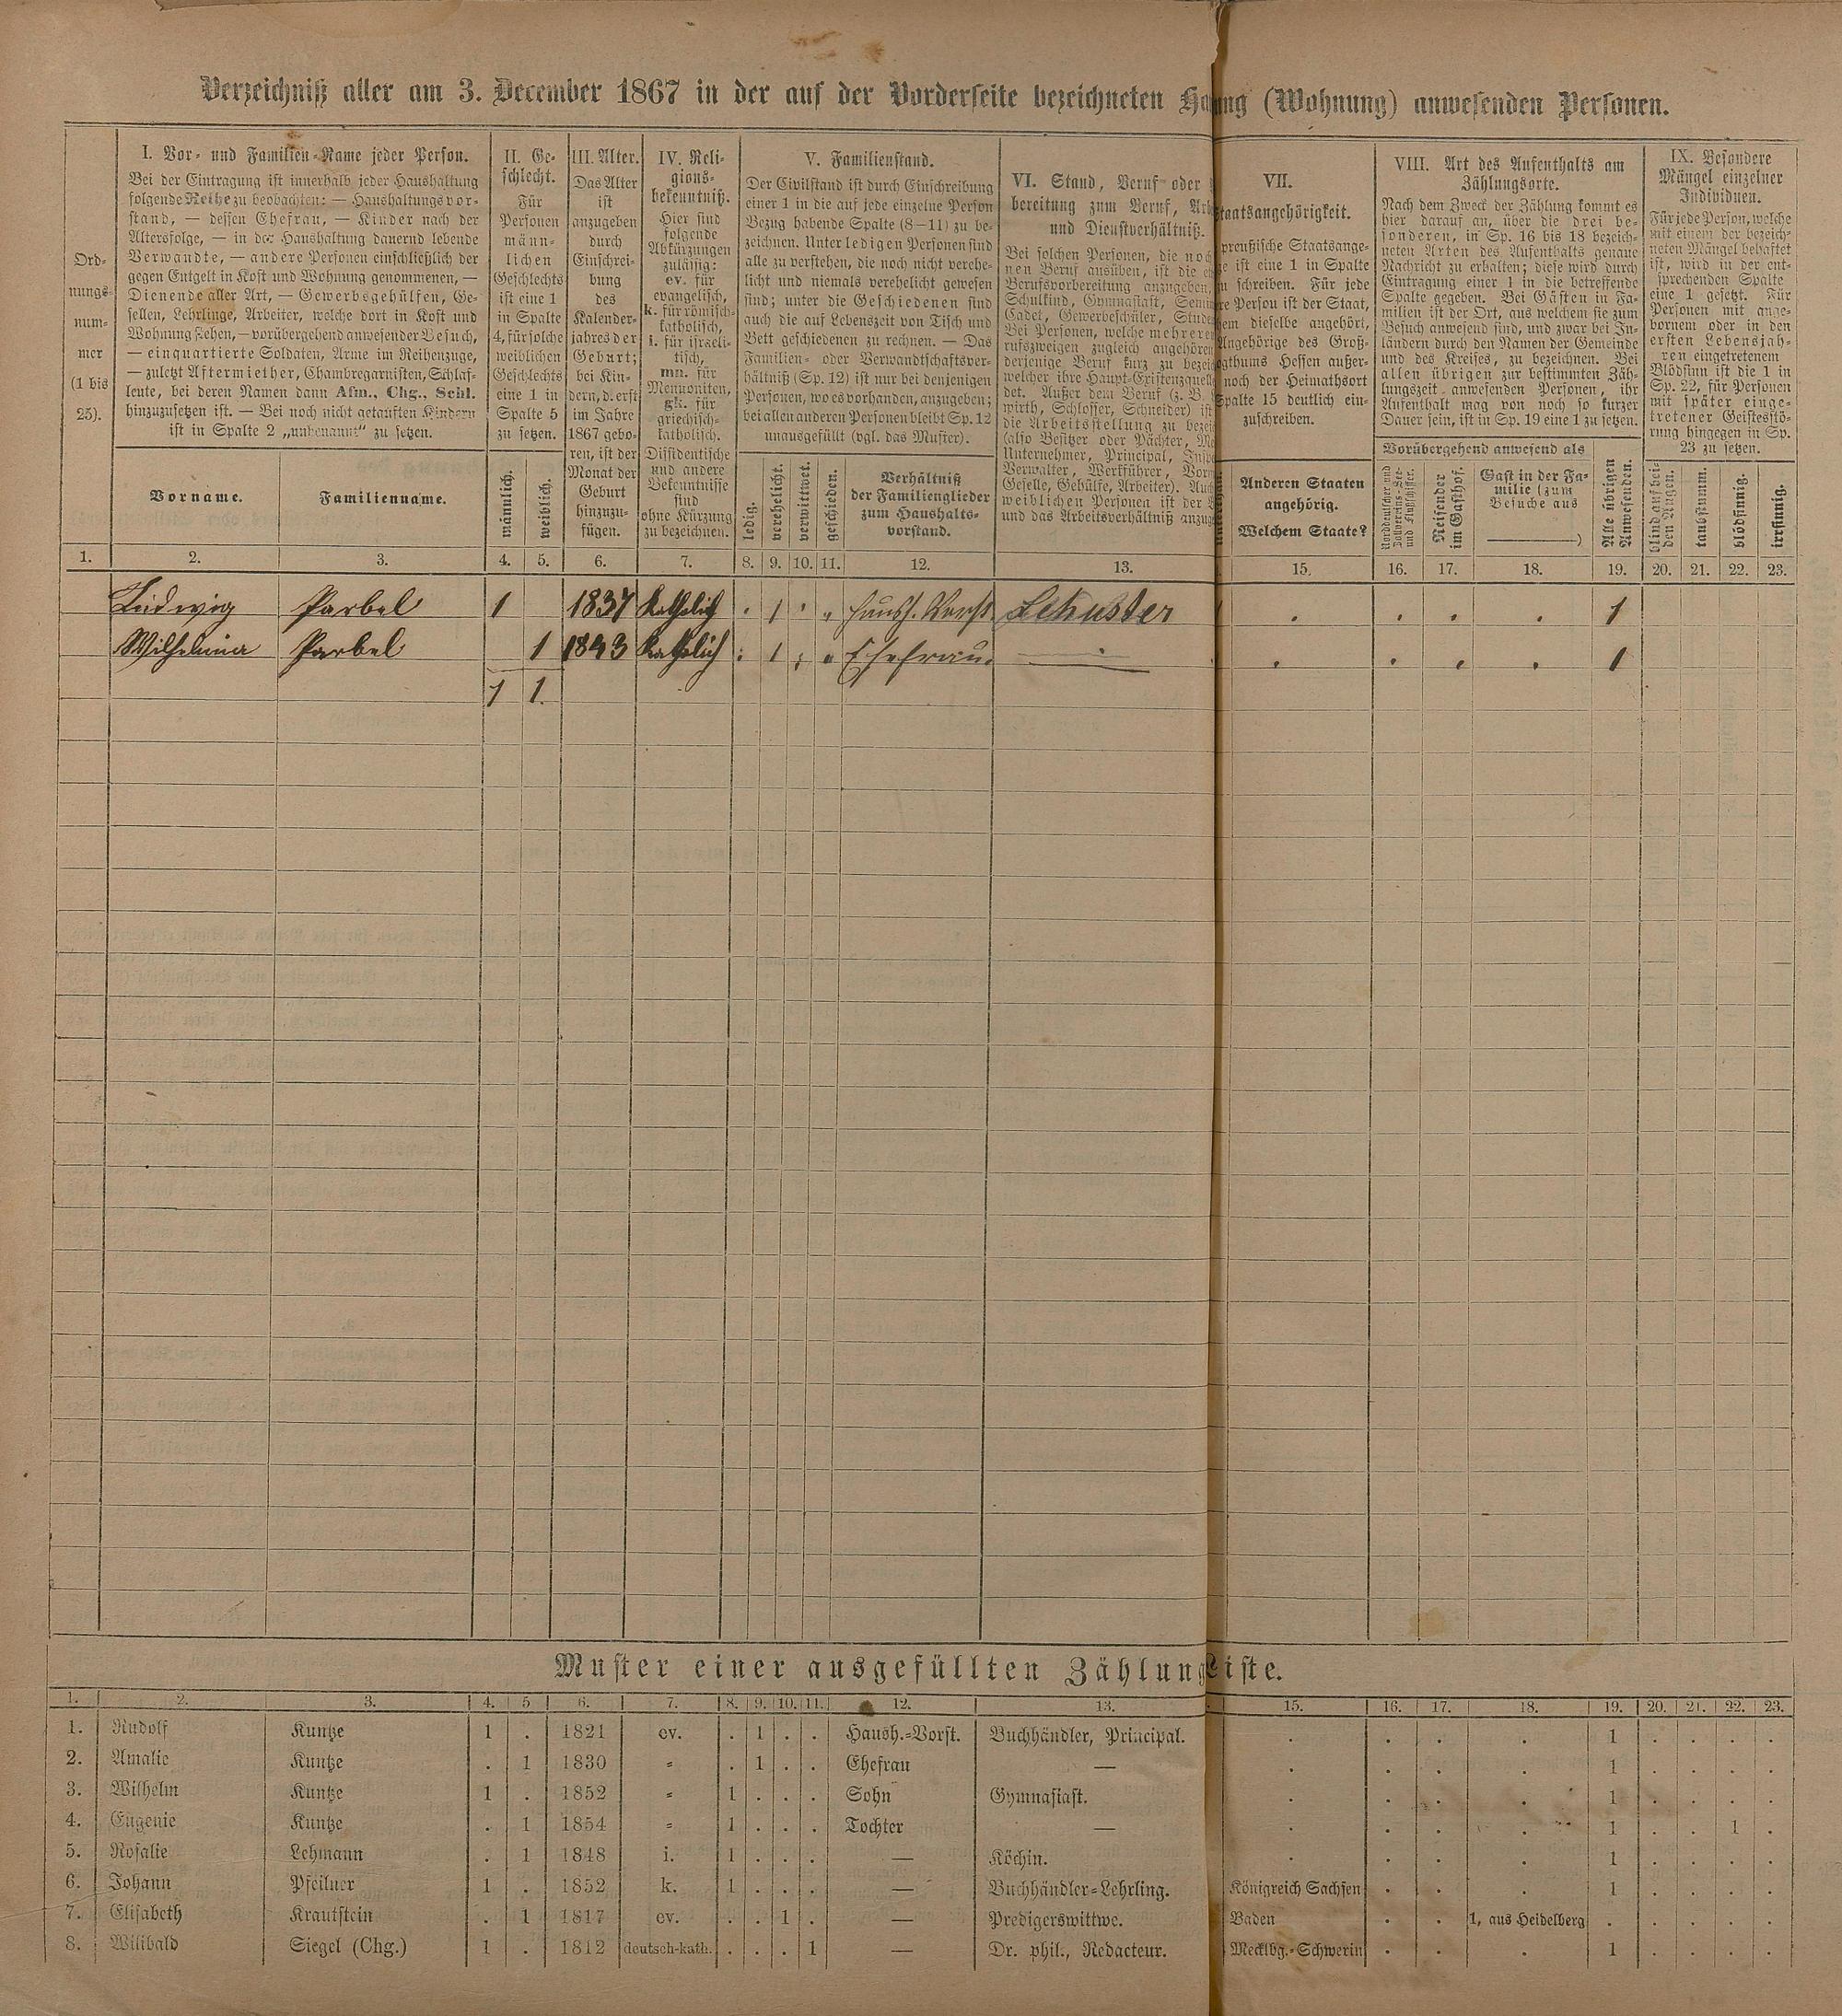 Verzeichniß aller am 3. December 1867 in der auf der Vorderseite bezeichneten Ha ng (Wohnung) anwesenden Personen.
Ord-
nungs-
num-
mer
(1 bis
25).
I. Vor- und Familien-Name jeder Person.
Bei der Eintragung ist innerhalb jeder Haushaltung
folgende Reihe zu beobachten: — Haushaltungsvor-
stand, — dessen Ehefrau, — Kinder nach der
Altersfolge, — in der Haushaltung dauernd lebende
Verwandte, — andere Personen einschließlich der
gegen Entgelt in Kost und Wohnung genommenen, —
Dienende aller Art, — Gewerbsgehülfen, Ge-
sellen, Lehrlinge, Arbeiter, welche dort in Kost und
Wohnung stehen, — vorübergehend anwesender Besuch,
— einquartierte Soldaten, Arme im Reihenzuge,
— zuletzt Aftermiether, Chambregarnisten, Schlaf-
leute, bei deren Namen dann Afm., Chg., Schl.
hinzuzusetzen ist. — Bei noch nicht getauften Kindern
ist in Spalte 2 „unbenannt“ zu setzen.
Vorname.
Familienname.
II. Ge-
schlecht.
Für
Personen
männ-
lichen
Geschlechts
ist eine 1
in Spalte
4, für solche
weiblichen
Geschlechts
eine 1 in
Spalte 5
zu setzen.
männlich.
weiblich.
III. Alter.
Das Alter
ist
anzugeben
durch
Einschrei-
bung
des
Kalender-
jahres der
Geburt;
bei Kin-
dern, d. erst
im Jahre
1867 gebo-
ren, ist der
Monat der
Geburt
hinzuzu-
fügen.
IV. Reli-
gions-
bekenntniß.
Hier sind
folgende
Abkürzungen
zulässig:
ev. für
evangelisch,
k. für römisch-
katholisch,
i. für israeli-
tisch,
mn. für
Mennoniten,
gk. für
griechisch-
katholisch.
Dissidentische
und andere
Bekenntnisse
sind
ohne Kürzung
zu bezeichnen.
V. Familienstand.
Der Civilstand ist durch Einschreibung
einer 1 in die auf jede einzelne Person
Bezug habende Spalte (8—11) zu be-
zeichnen. Unter ledigen Personen sind
alle zu verstehen, die noch nicht verehe-
licht und niemals verehelicht gewesen
sind; unter die Geschiedenen sind
auch die auf Lebenszeit von Tisch und
Bett geschiedenen zu rechnen. — Das
Familien- oder Verwandtschaftsver-
hältniß (Sp. 12) ist nur bei denjenigen
Personen, wo es vorhanden, anzugeben;
bei allen anderen Personen bleibt Sp. 12
unausgefüllt (vgl. das Muster).
ledig.
verehelicht.
verwittwet.
geschieden.
Verhältniß
der Familienglieder
zum Haushalts-
vorstand.
VI. Stand, Beruf oder
bereitung zum Beruf, Arb
und Dienstverhältniß.
Bei solchen Personen, die noch
nen Beruf ausüben, ist die
Berufsvorbereitung anzugeben,
Schulkind, Gymnasiast, Semin
Cadet, Gewerbeschüler, Stude
Bei Personen, welche mehreren
rufszweigen zugleich angehören
derjenige Beruf kurz zu bezei
welcher ihre Haupt-Existenzquelle
det. Außer dem Beruf (z. B.
wirth, Schlosser, Schneider) ist
die Arbeitsstellung zu bezei
(also Besitzer oder Pächter, Me
Unternehmer, Principal, Insp
Verwalter, Werkführer, Vorm
Geselle, Gehülfe, Arbeiter). Auch
weiblichen Personen ist der B
und das Arbeitsverhältniß anzug
VII.
taatsangehörigkeit.
preußische Staatsange-
e ist eine 1 in Spalte
u schreiben. Für jede
re Person ist der Staat,
em dieselbe angehört,
Angehörige des Groß-
ogthums Hessen außer-
noch der Heimathsort
Spalte 15 deutlich ein-
zuschreiben.
Anderen Staaten
angehörig.
Welchem Staate?
VIII. Art des Aufenthalts am
Zählungsorte.
Nach dem Zweck der Zählung kommt es
hier darauf an, über die drei be-
sonderen, in Sp. 16 bis 18 bezeich-
neten Arten des Aufenthalts genaue
Nachricht zu erhalten; diese wird durch
Eintragung einer 1 in die betreffende
Spalte gegeben. Bei Gästen in Fa-
milien ist der Ort, aus welchem sie zum
Besuch anwesend sind, und zwar bei In-
ländern durch den Namen der Gemeinde
und des Kreises, zu bezeichnen. Bei
allen übrigen zur bestimmten Zäh-
lungszeit anwesenden Personen, ihr
Aufenthalt mag von noch so kurzer
Dauer sein, ist in Sp. 19 eine 1 zu setzen.
Vorübergehend anwesend als
Norddeutscher und
Zollvereins-See-
und Flußschiffer.
Reisender
im Gasthof.
Gast in der Fa-
milie (zum
Besuche aus
)
Alle übrigen
Anwesenden.
IX. Besondere
Mängel einzelner
Individuen.
Für jede Person, welche
mit einem der bezeich-
neten Mängel behaftet
ist, wird in der ent-
sprechenden Spalte
eine 1 gesetzt. Für
Personen mit ange-
bornem oder in den
ersten Lebensjah-
ren eingetretenem
Blödsinn ist die 1 in
Sp. 22, für Personen
mit später einge-
tretener Geistesstö-
rung hingegen in Sp.
23 zu setzen.
blind auf bei-
den Augen.
taubstumm.
blödsinnig.
irrsinnig.
1. 2. 3. 4. 5. 6. 7. 8. 9. 10. 11. 12. 13. 15. 16. 17. 18. 19. 20. 21. 22. 23.
Ludwig Parbel 1 1837 Katholich . 1 . . Haush. Vorst. Schuster . . . . 1
Wilhelmina Parbel 1 1843 Katholich . 1 . . Ehefrau. — . . . . 1
1 1.
Muster einer ausgefüllten Zählungsliste.
1. 2. 3. 4. 5 6. 7. 8. 9. 10. 11. 12. 13. 15. 16. 17. 18. 19. 20. 21. 22. 23.
1. Rudolf Kuntze 1 . 1821 ev. . 1 . . Haush.-Vorst. Buchhändler, Principal. . . . . 1 . . . .
2. Amalie Kuntze . 1 1830 " . 1 . . Ehefrau — . . . . 1 . . . .
3. Wilhelm Kuntze 1 . 1852 " 1 . . . Sohn Gymnasiast. . . . . 1 . . . .
4. Eugenie Kuntze . 1 1854 " 1 . . . Tochter — . . . . 1 . . 1 .
5. Rosalie Lehmann . 1 1848 i. 1 . . . — Köchin. . . . . 1 . . . .
6. Johann Pfeilner 1 . 1852 k. 1 . . . — Buchhändler-Lehrling. Königreich Sachsen . . . 1 . . . .
7. Elisabeth Krautstein . 1 1817 ev. . . 1 . — Predigerswittwe. Baden . . 1, aus Heidelberg . . . . .
8. Wilibald Siegel (Chg.) 1 . 1812 deutsch-kath. . . . 1 — Dr. phil., Redacteur. Mecklbg.-Schwerin . . . 1 . . . .